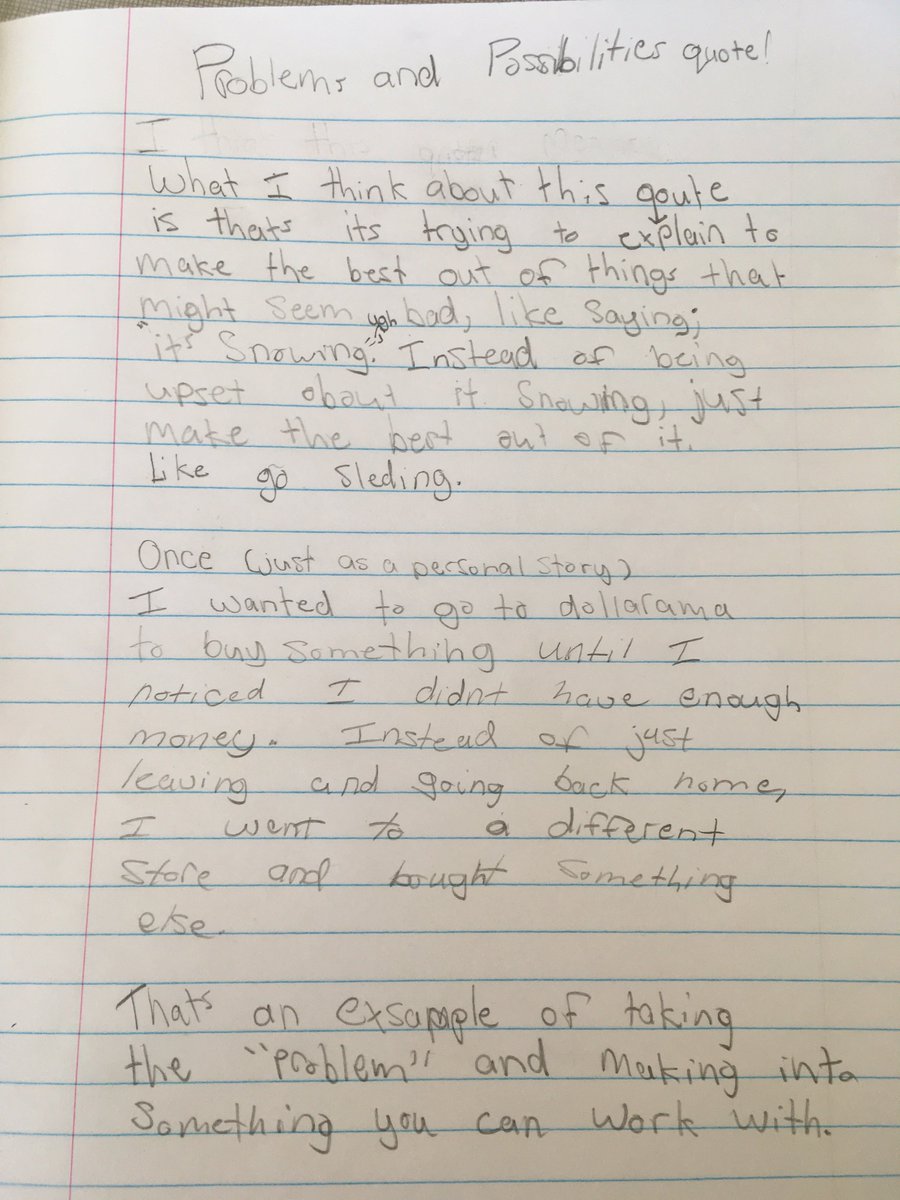 Problems and Possibilities quote!
I
What I think about this qoute
is thats its trying to explain to
make the best out of things that
might seem bad, like saying;
"it's snowing." Instead of being
upset about it snowing, just
make the best out of it.
Like go sleding.
Once (just as a personal story)
I wanted to go to dollarama
to buy something until I
noticed I didnt have enough
money. Instead of just
leaving and going back home,
I went to a different
store and bought something
else.
Thats an exsapmple of taking
the "problem" and making into
something you can work with.